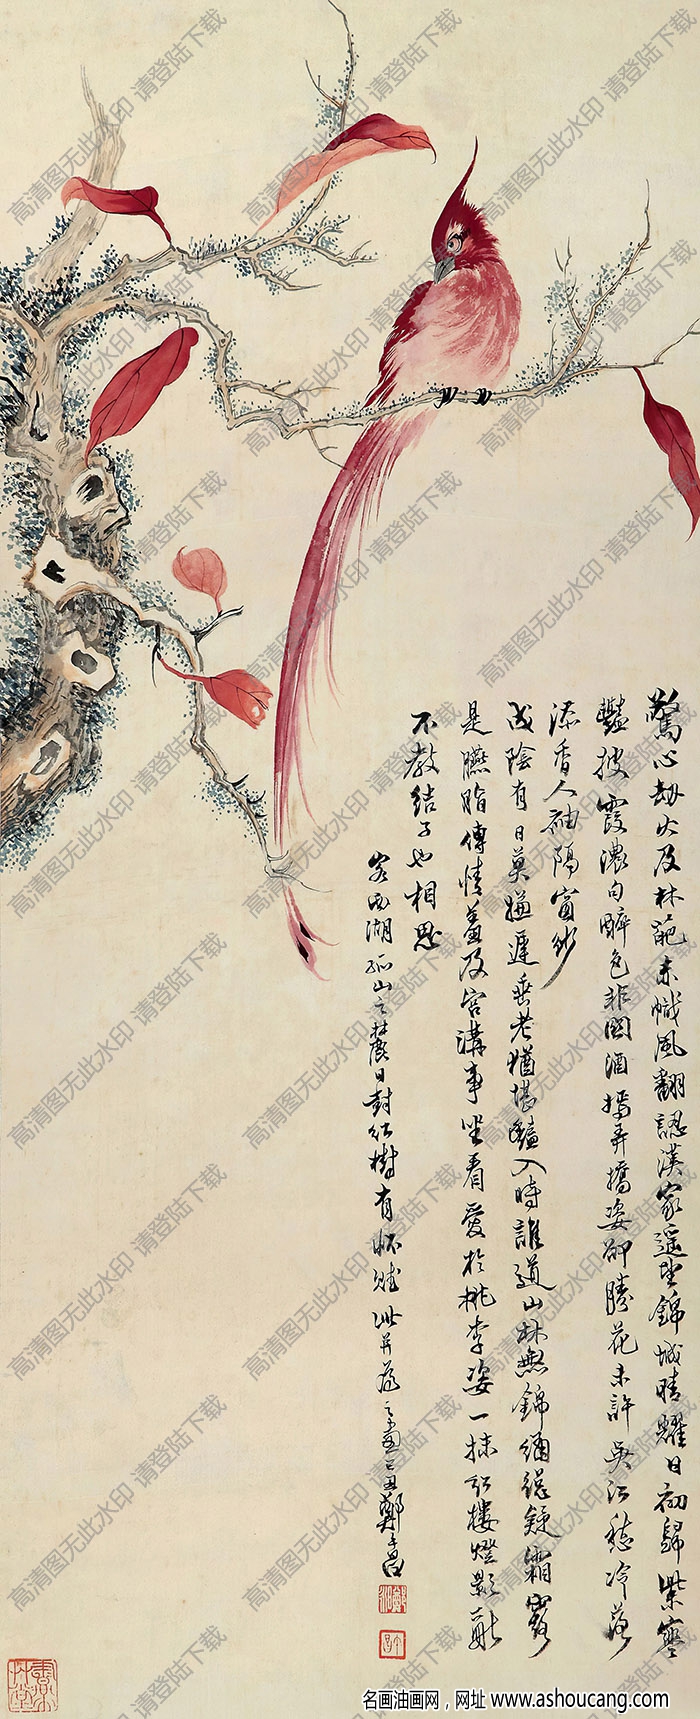 驚心劫火及林葩赤幟風翻認漢家遥望錦城晴耀日初歸紫塞
豔披霞濃勻醉色非關酒弄撟姿卻勝花未許吳江愁冷落
添香人袖隔窗紗
成陰有日莫嫌遲垂老猶堪豔入時誰道山林無錦繡總疑霜露
是臙脂傳情羞及宮溝事坐看愛於桃李姿一抹紅樓燈影
不教結子也相思
客西湖孤山之麓日對紅樹有怀賦此并為之圖己丑鄭午昌
午昌
高清图无此水印 请登陆下载
名画油画网，网址 www.ashoucang.com